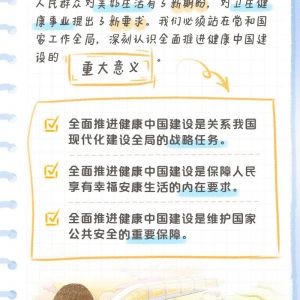 人民群众对美好生活有了新期盼，对卫生健
康事业提出了新要求。我们必须站在党和国
家工作全局，深刻认识全面推进健康中国建
设的 重大意义 。
全面推进健康中国建设是关系我国
现代化建设全局的战略任务。
全面推进健康中国建设是保障人民
享有幸福安康生活的内在要求。
全面推进健康中国建设是维护国家
公共安全的重要保障。